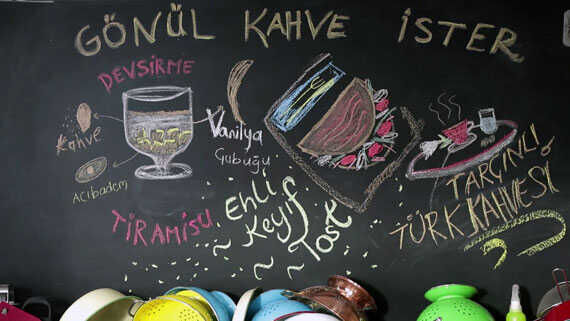 GÖNÜL KAHVE İSTER
DEVSİRME
Kahve
Acıbadem
Vanilya
Çubuğu
TİRAMİSU
Ehli
Keyif
~ Tost ~
TARÇINLI
TÜRK KAHVESİ